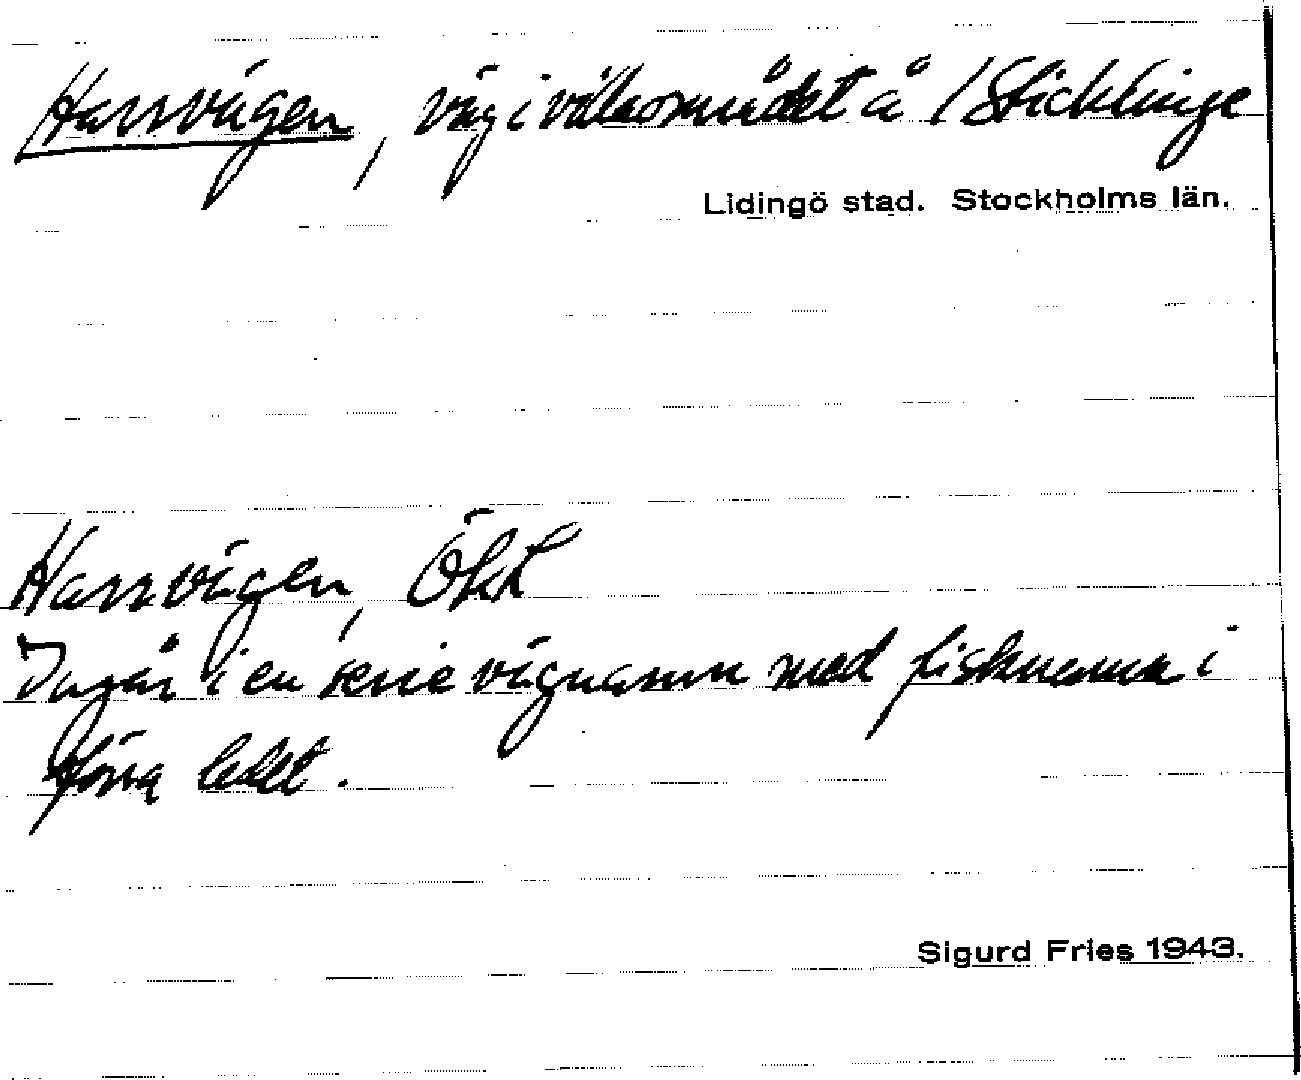 Harrvägen, väg i villaområdet å / Sticklinge
Lidingö stad. Stockholms län.
Harrvägen, ÖkL
Ingår i en serie vägnamn med fisknamn i
förra ledet.
Sigurd Fries 1943.